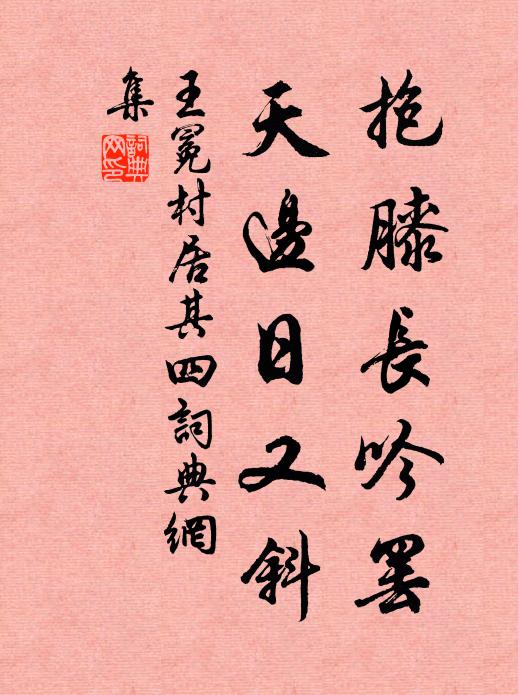 抱膝長吟罷
天邊日又斜
王冕村居其四詞典網
集
詞典
网印